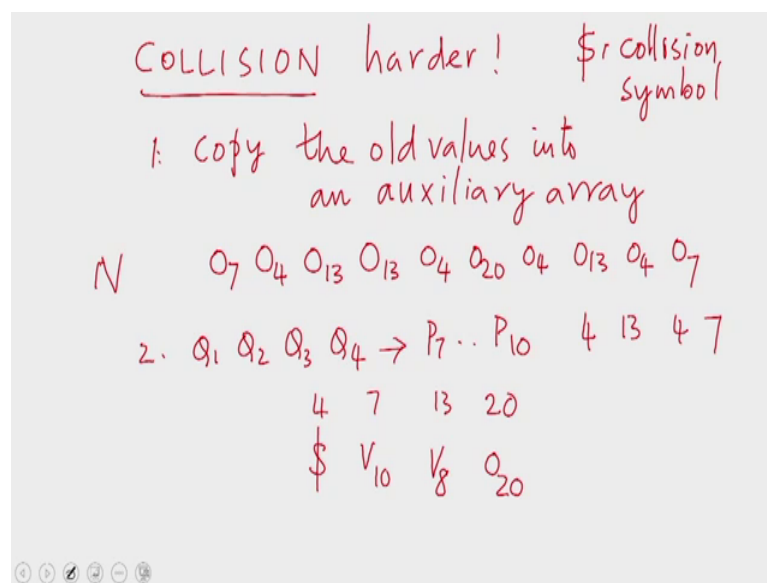 COLLISION harder! $: collision
symbol
1. Copy the old values into
an auxiliary array
N O₇ O₄ O₁₃ O₁₃ O₄ O₂₀ O₄ O₁₃ O₄ O₇
2. Q₁ Q₂ Q₃ Q₄ → P₇ .. P₁₀ 4 13 4 7
4 7 13 20
$ V₁₀ V₈ O₂₀